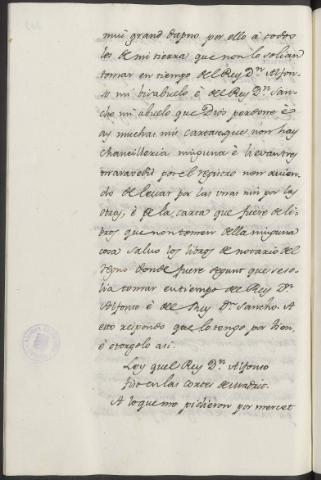 mui grand dapno por ello à todos
los de mi tierra que non lo solian
tomar en tiempo del Rey Dⁿ Alfon-
so mi bisabuelo è del Rey Dⁿ San-
cho mi abuelo que Dios perdone è
ay muchas mis cartas que non hay
chancilleria ninguna è lievan tres
maravedis por el registro non avien-
do de levar por las unas nin por las
otras, è de la carta que fuere de li-
bros que non tomen della ninguna
cosa salvo los libros de notario del
regno donde fuere segunt que se so-
lia tomar en tiempo del Rey Dⁿ
Alfonso è del Rey Dⁿ Sancho. A
esto respondo que lo tengo por bien
è otorgolo asi.
Ley quel Rey Dⁿ Alfonso
fiço en las cortes de madrid.
A lo que me pidieron por merced